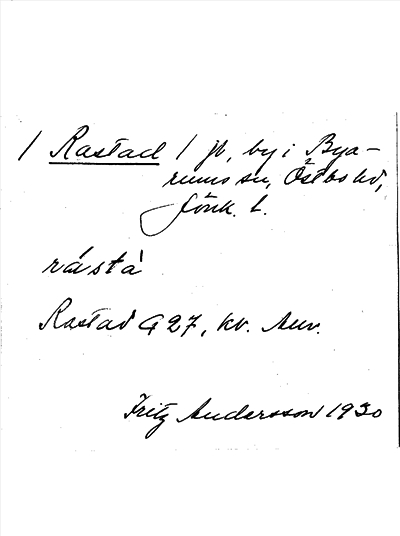 / Rastad / jb, by i Bya-
rums sn, Östbo hd,
Jönk. l.
rásta
Rastad G 27, kv. Auv.
Fritz Andersson 1930